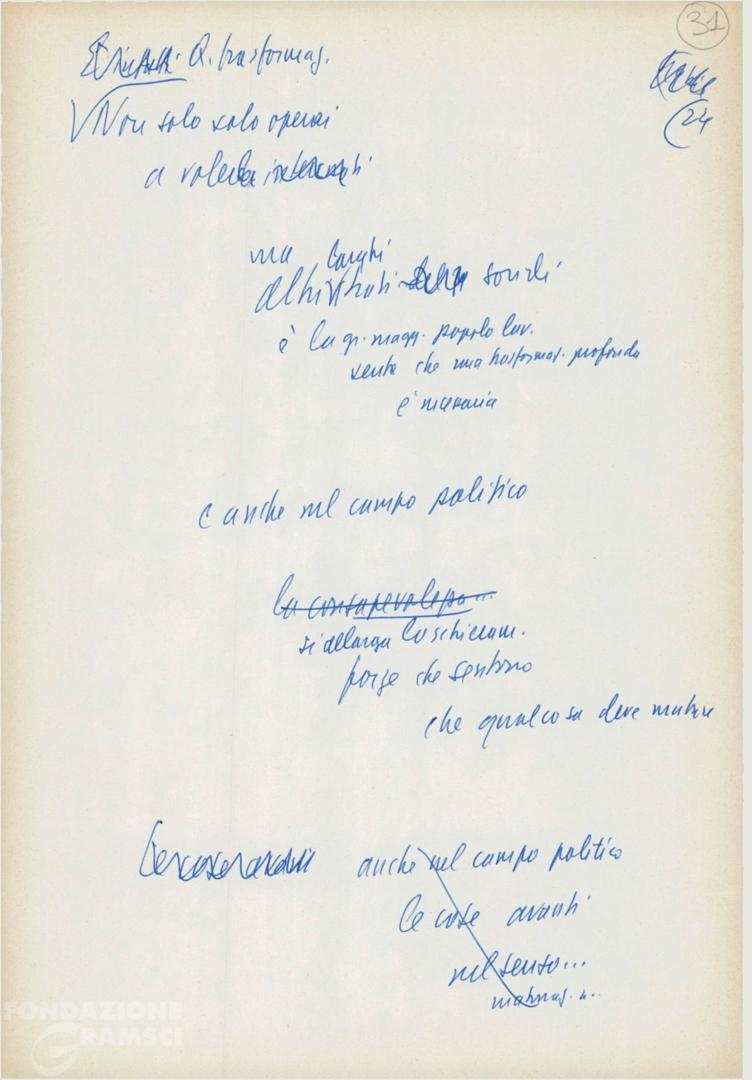 31
24
Q. trasformaz.
Non solo solo operai
a volerla
ma larghi
altri strati sociali
è la gr. magg. popolo lav.
sente che una trasformaz. profonda
è necessaria
e anche nel campo politico
la consapevolezza...
si allarga lo schieram.
forze che sentono
che qualcosa deve mutare
anche nel campo politico
le cose avanti
nel senso...
FONDAZIONE
GRAMSCI